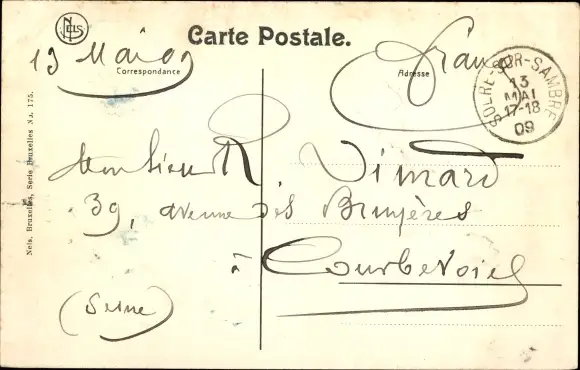 NELS
Carte Postale.
13 Mai 09
France
Correspondance
Adresse
SOLRE-SUR-SAMBRE
13
MAI
17-18
09
Monsieur R. Vimard
39, avenue des Bruyères
à Courbevoie
(Seine)
Nels, Bruxelles, Serie Bruxelles No. 175.